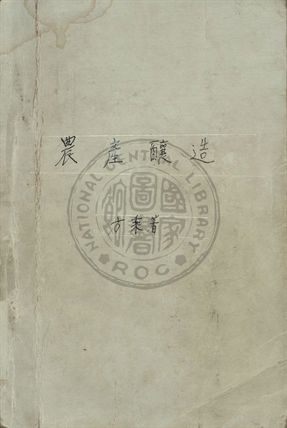 農產釀造
方乘著
NATIONAL CENTRAL LIBRARY
ROC
國家圖書館